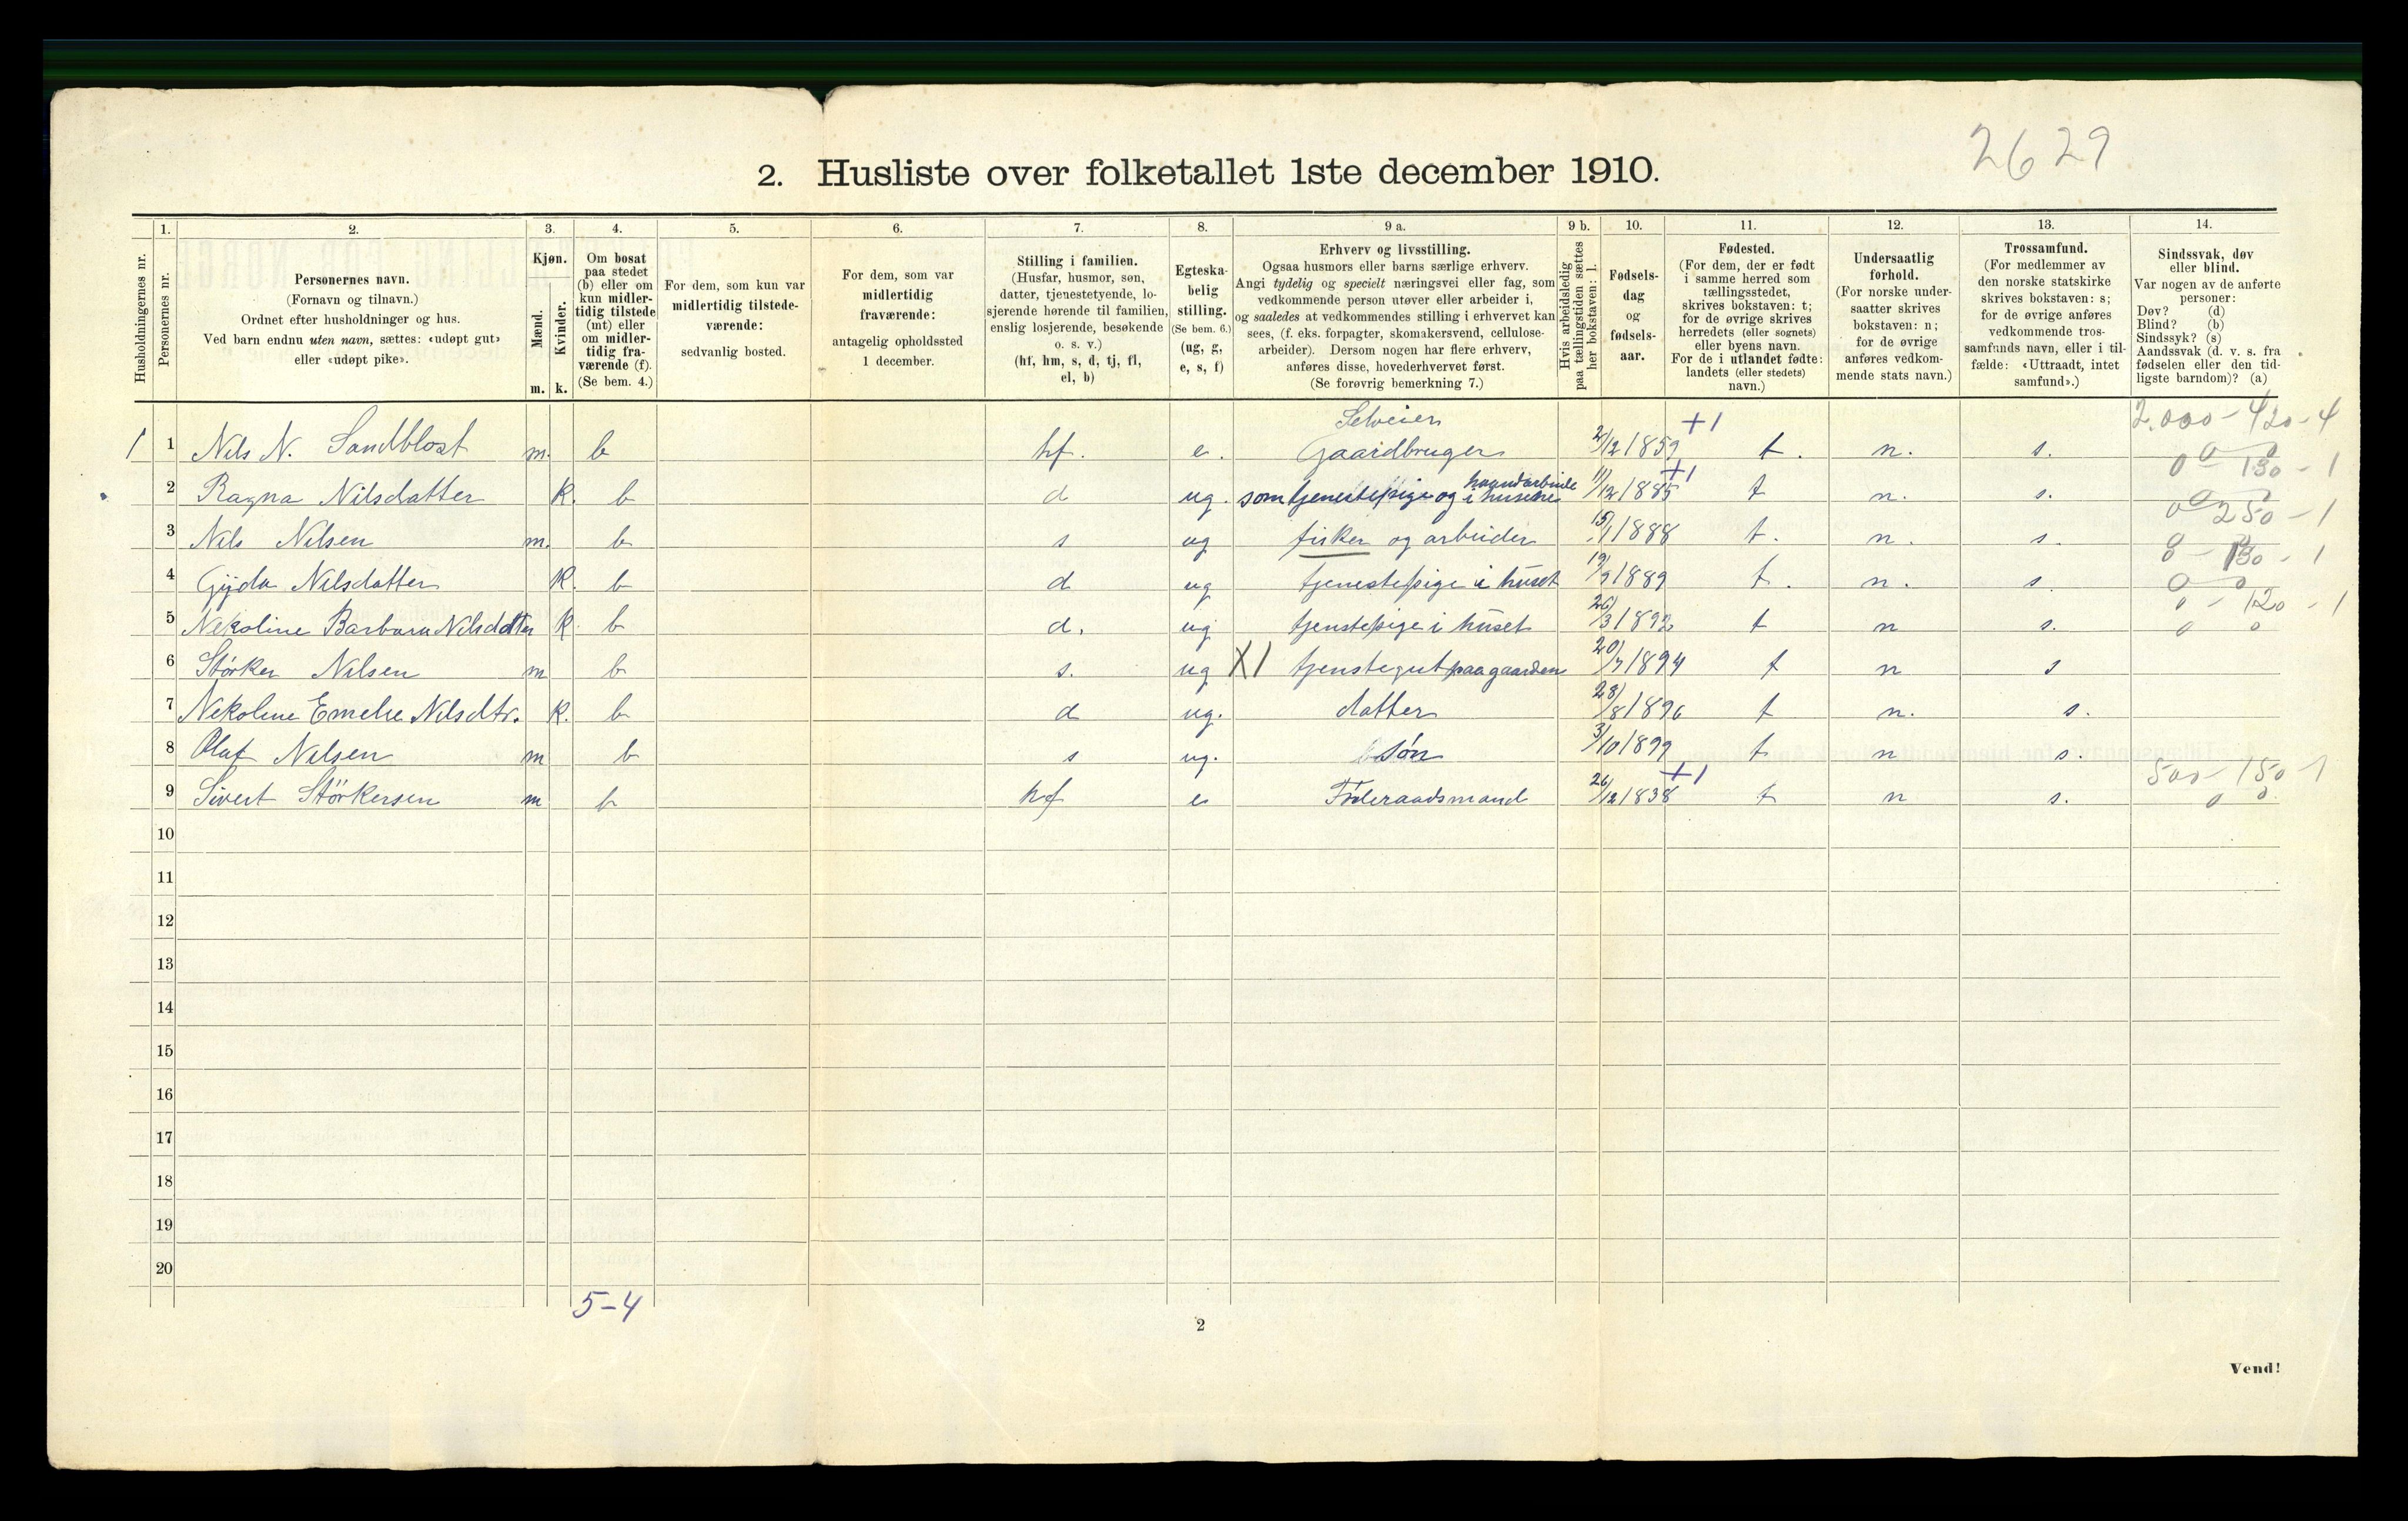 2629
2. Husliste over folketallet 1ste december 1910.
Husholdningernes nr.
1. Personernes nr.
2. Personernes navn.
(Fornavn og tilnavn.)
Ordnet efter husholdninger og hus.
Ved barn endnu uten navn, sættes: «udøpt gut»
eller «udøpt pike».
3. Kjøn.
Mænd. m.
Kvinder. k.
4. Om bosat
paa stedet
(b) eller om
kun midler-
tidig tilstede
(mt) eller
om midler-
tidig fra-
værende (f).
(Se bem. 4.)
5. For dem, som kun var
midlertidig tilstede-
værende:
sedvanlig bosted.
6. For dem, som var
midlertidig
fraværende:
antagelig opholdssted
1 december.
7. Stilling i familien.
(Husfar, husmor, søn,
datter, tjenestetyende, lo-
sjerende hørende til familien,
enslig losjerende, besøkende
o. s. v.)
(hf, hm, s, d, tj, fl,
el, b)
8. Egteska-
belig
stilling.
(Se bem. 6.)
(ug, g,
e, s, f)
9 a. Erhverv og livsstilling.
Ogsaa husmors eller barns særlige erhverv.
Angi tydelig og specielt næringsvei eller fag, som
vedkommende person utøver eller arbeider i,
og saaledes at vedkommendes stilling i erhvervet kan
sees, (f. eks. forpagter, skomakersvend, cellulose-
arbeider). Dersom nogen har flere erhverv,
anføres disse, hovederhvervet først.
(Se forøvrig bemerkning 7.)
9 b. Hvis arbeidsledig
paa tællingstiden sættes
her bokstaven: l.
10. Fødsels-
dag
og
fødsels-
aar.
11. Fødested.
(For dem, der er født
i samme herred som
tællingsstedet,
skrives bokstaven: t;
for de øvrige skrives
herredets (eller sognets)
eller byens navn.
For de i utlandet fødte:
landets (eller stedets)
navn.)
12. Undersaatlig
forhold.
(For norske under-
saatter skrives
bokstaven: n;
for de øvrige
anføres vedkom-
mende stats navn.)
13. Trossamfund.
(For medlemmer av
den norske statskirke
skrives bokstaven: s;
for de øvrige anføres
vedkommende tros-
samfunds navn, eller i til-
fælde: «Uttraadt, intet
samfund».)
14. Sindssvak, døv
eller blind.
Var nogen av de anførte
personer:
Døv? (d)
Blind? (b)
Sindssyk? (s)
Aandssvak (d. v. s. fra
fødselen eller den tid-
ligste barndom)? (a)
Selveier +1 2.000-420-4
1 1 Nils N. Sandblost m. b hf. e. Gaardbruger 1859 t. n. s. 0 0
haandarbeide +1 0 - 130 - 1
2 Ragna Nilsdatter k. b d ug. som tjenestepige og i husene 11/12 1885 t n. s. 0 0
0 250 - 1
3 Nils Nilsen m. b s ug fisker og arbeider 15/1 1888 t. n. s. 0 0
0 - 130 - 1
4 Gyda Nilsdatter k. b d ug tjenestepige i huset 1889 t. n. s. 0 0
0 - 120 - 1
5 Nekoline Barbara Nilsdatter k b d. ug tjenstepige i huset 26/3 1892 t n s. 0 0
6 Störker Nilsen m b s. ug X1 tjenstegut paa gaarden 20/7 1894 t n s
7 Nekoline Emelie Nilsdtr. k. b d ug. datter 28/8 1896 t n. s.
8 Olaf Nilsen m b s ug. søn 3/10 1899 t n s.
+1 500 - 150 - 1
9 Sivert Störkersen m b hf e Føderaadsmand 26/12 1838 t n s. 0 0.
10
11
12
13
14
15
16
17
18
19
20
5-4
2
Vend!